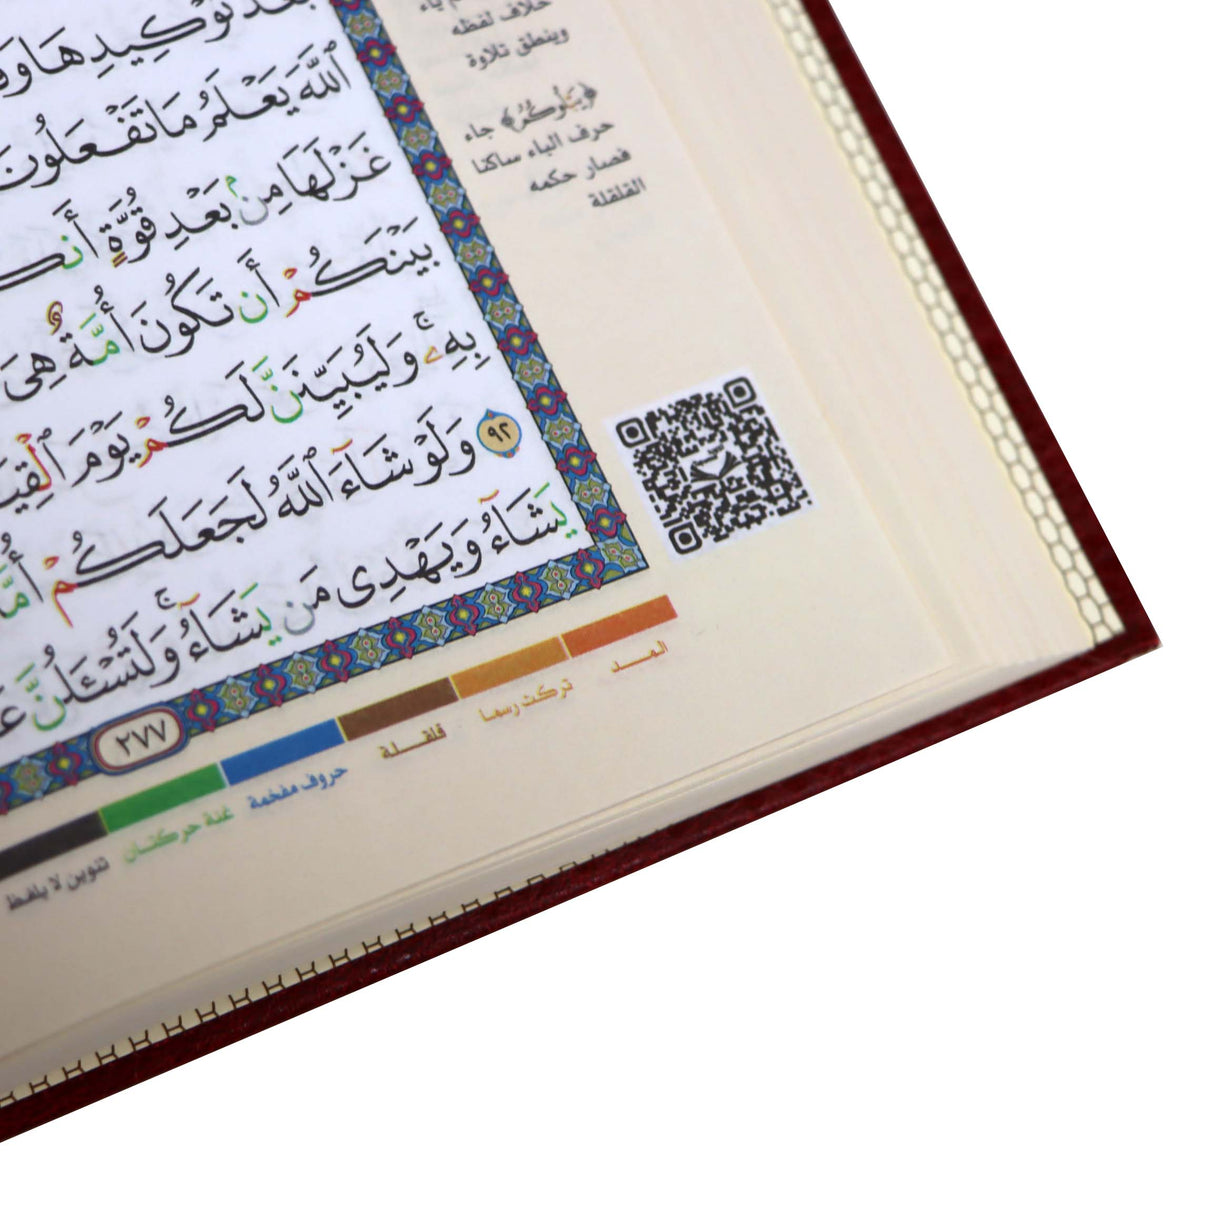 بَعْدَ تَوْكِيدِهَا
ٱللَّهَ يَعْلَمُ مَا تَفْعَلُونَ
غَزْلَهَا مِنۢ بَعْدِ قُوَّةٍ
بَيْنَكُمْ أَن تَكُونَ أُمَّةٌ هِىَ
بِهِۦۚ وَلَيُبَيِّنَنَّ لَكُمْ يَوْمَ
٩٢ وَلَوْ شَآءَ ٱللَّهُ لَجَعَلَكُمْ
يَشَآءُ وَيَهْدِى مَن يَشَآءُۚ وَلَتُسْـَٔلُنَّ
٢٧٧
خلاف لفظه
وينطق تلاوة
جاء
حرف الباء ساكنا
فصار حكمه
القلقلة
المـــد
تركت رسما
قلقـــلة
حروف مفخمة
غنة حركتـان
تنوين لا يلفظ